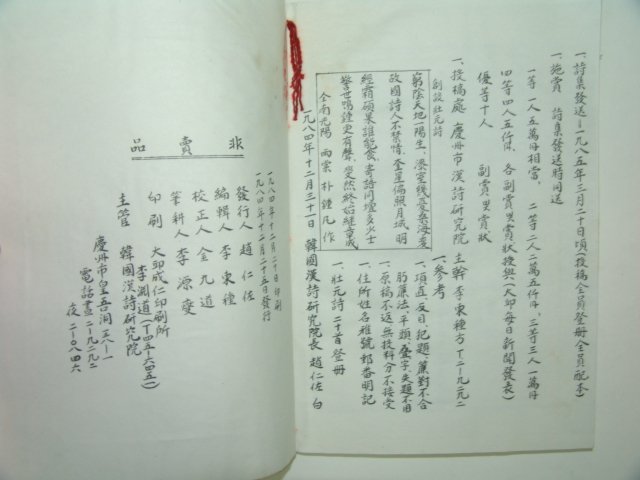 一、詩集發送ー一九八五年三月二十日頃(投稿全員登冊全員配本)
一、施賞 詩集發送時同送
一等一人五萬円相當、二等二人二萬五仟円、三等三人一萬円
四等四人五仟円、各副賞및賞狀授與(大邱每日新聞發表)
優等十人 副賞및賞狀
一、投稿處 慶州市漢詩研究院 主幹 李東種方 T二ー九二九二
創設壯元詩
窮陰天地一陽生、
故國詩人不禁情、奎星偏照月城明
經霜碩果誰能食、寄語同壇多少士
警世鳴鍾更有聲、斐然終始總章成
全南光陽 雨栗 朴鍾凡 作
一、參考
一、項直、反日記題、簾對不合
蜂簾法、平頭疊字、失題不用
一、原稿不返無投料分不接受
一、住所姓名雅號郵番明記
一、壯元詩二十首登冊
一九八四年十二月三十一日 韓國漢詩研究院長 趙仁佐 白
非賣品
一九八四年十二月二十日印刷
一九八四年十二月二十五日發行
發行人 趙仁佐
編輯人 李東種
校正人 金九道
筆耕人 李源燮
印刷 大邱成仁印刷所
李淵道(T四五ー六四五一)
主管 韓國漢詩研究院
慶州市皇吾洞三八ー一
電話晝二ー九二九二
夜二ー〇八四六